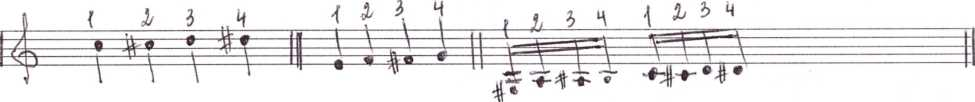 1 2 3 4 1 2 3 4 1 2 3 4 1 2 3 4